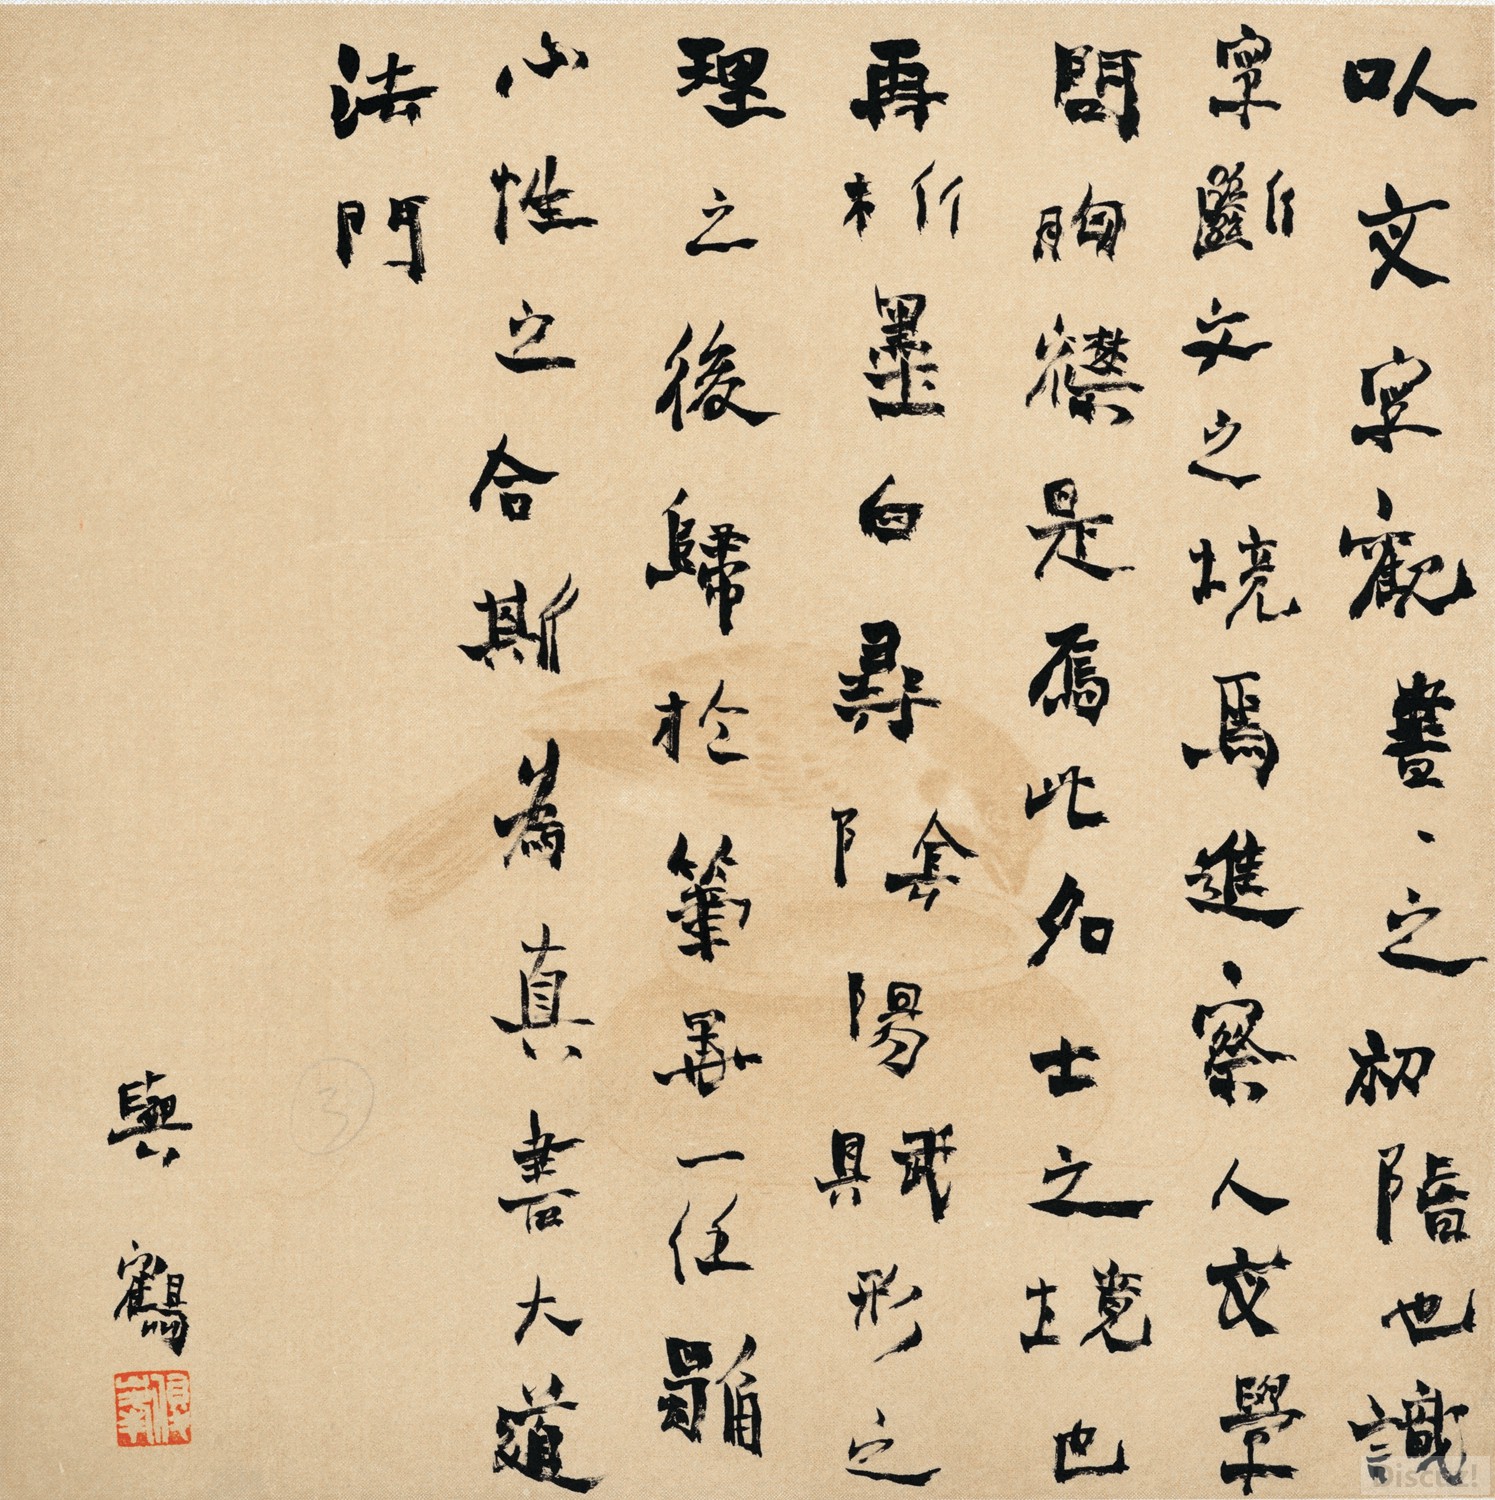 以文字觀書、之初階也識
字斷文之境焉進察人文學
問胸襟是爲此名士之境也
再析墨白尋陰陽賦形之
理之後歸於筆墨一任
心性之合斯為真書大道
法門
與鶴
Discuz!